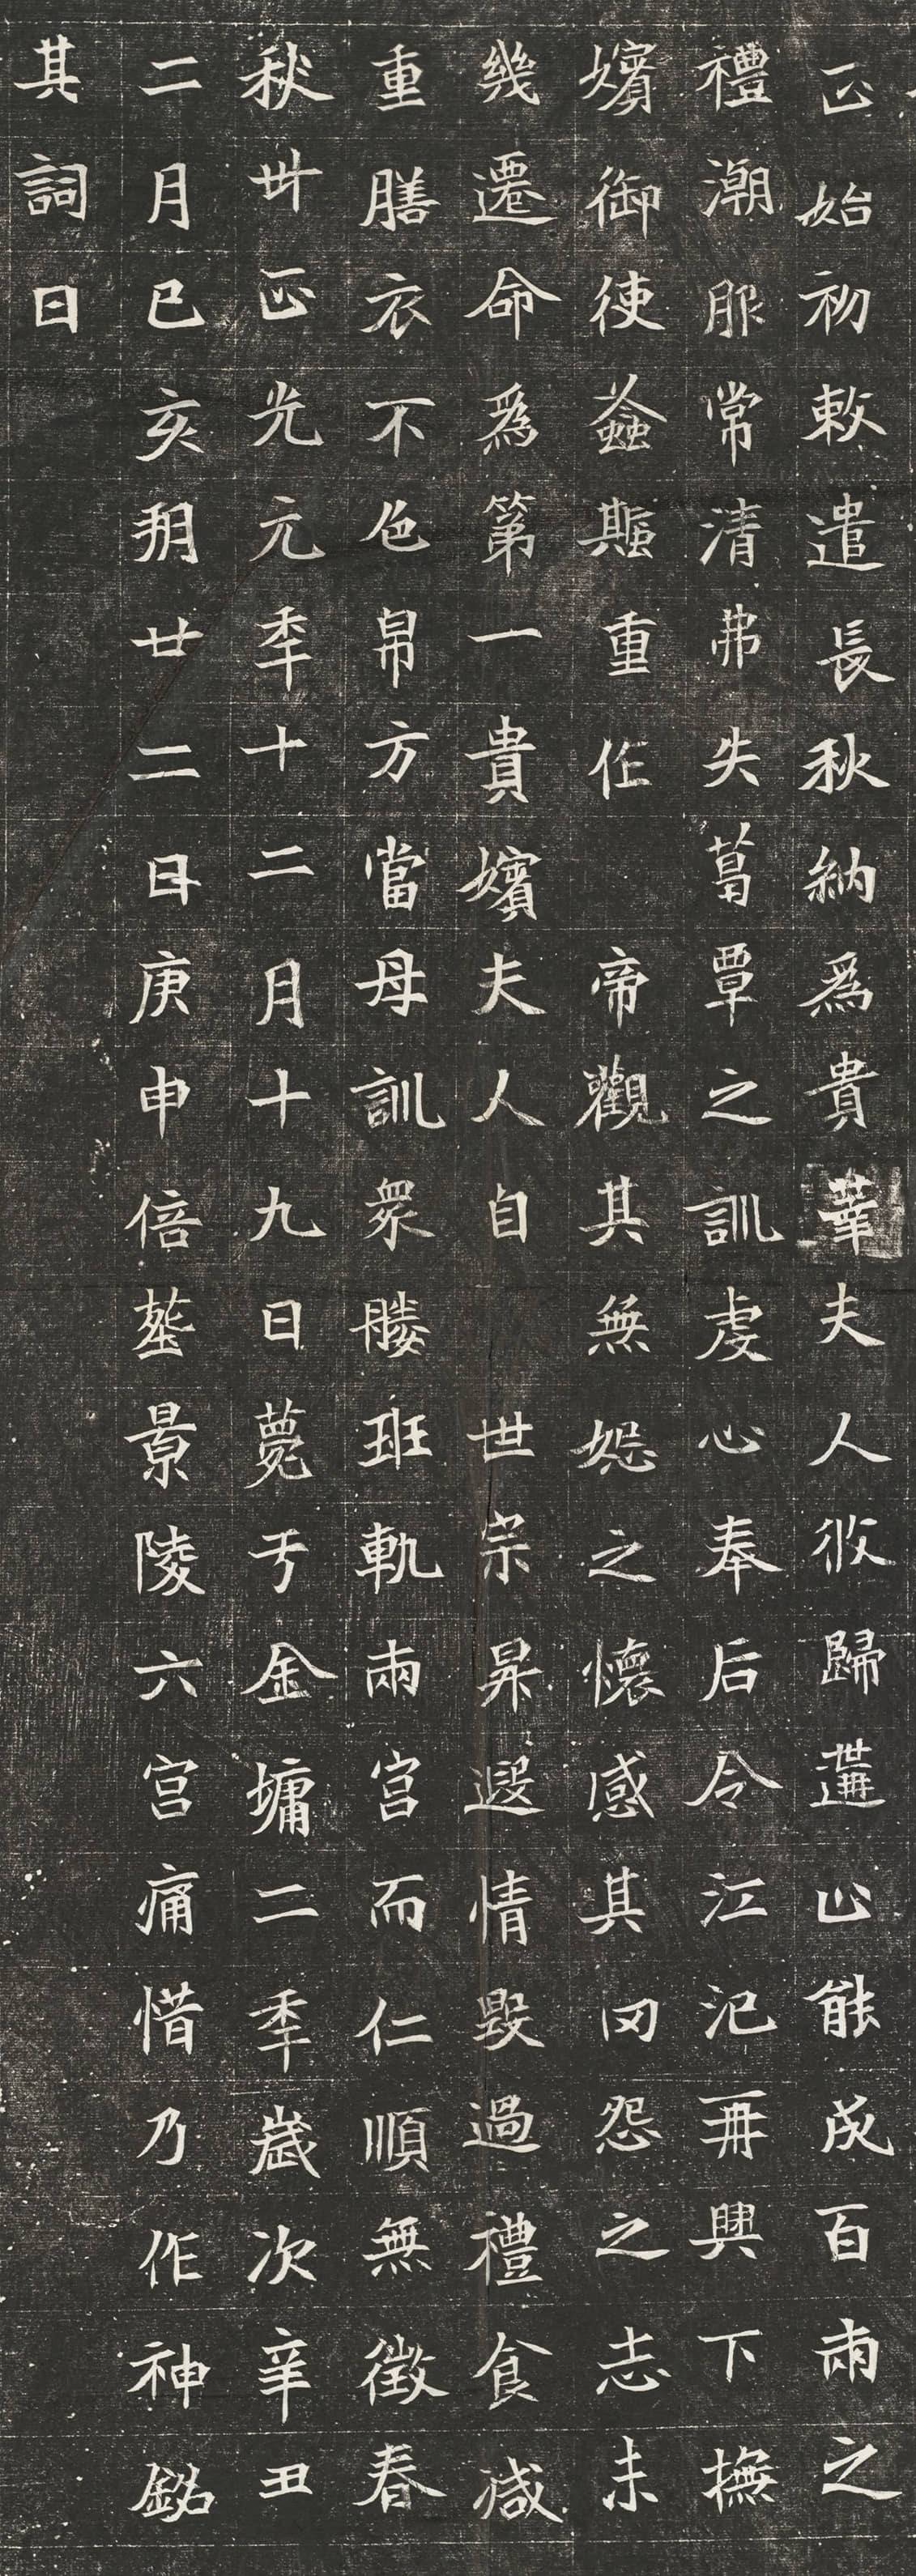 正始初敕遣長秋納爲貴華夫人攸歸遘止能成百兩之
禮澣服常清弗失葛覃之訓虔心奉后令江汜再興下撫
嬪御使螽斯重作帝觀其無妬之懷感其罔怨之志未
幾遷命爲第一貴嬪夫人自世宗昇遐情毀過禮食減
重膳衣不色帛方當母訓衆媵班軌兩宮而仁順無徵春
秋卅正光元年十二月十九日薨于金墉二年歲次辛丑
二月己亥朔廿二日庚申倍塟景陵六宮痛惜乃作神銘
其詞曰